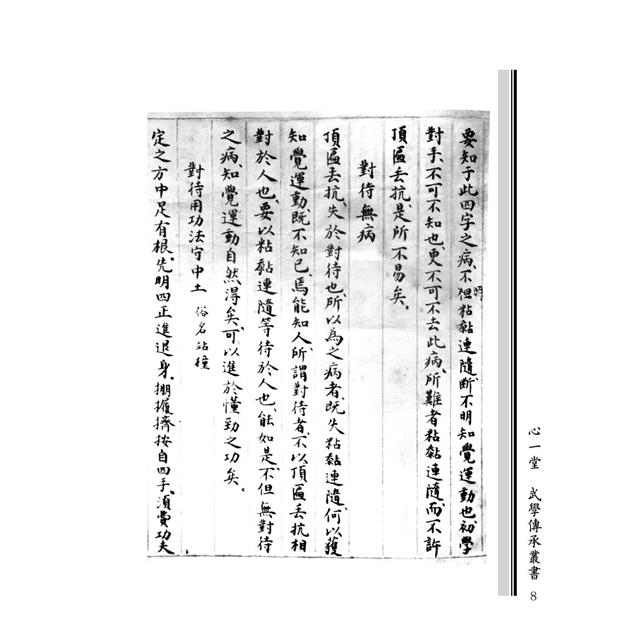 要知于此四字之病、不但粘黏連隨、斷不明知覺運動也、初學
對手、不可不知也、更不可不去此病、所難者粘黏連隨、而不許
頂匾丟抗、是所不易矣。
對待無病
頂匾丟抗、失於對待也、所以為之病者、既失粘黏連隨、何以獲
知覺運動、既不知己、焉能知人、所謂對待者、不以頂匾丟抗相
對於人也、要以粘黏連隨等待於人也、能如是、不但無對待
之病、知覺運動自然得矣、可以進於懂勁之功矣。
對待用功法守中土 俗名站橦
定之方中足有根、先明四正進退身、掤擠按自四手、須費功夫
心一堂 武學傳承叢書
8